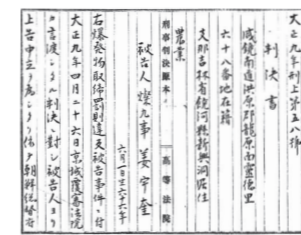 大正九年刑上第五八號
判決書
咸鏡南道洪原郡龍原面靈德里
六十八番地在籍
支那吉林省饒河縣新興洞居住
農業
被告人燦九事 姜宇奎
六月一日生六十六年
右爆發物取締罰則違反被告事件ニ付
大正九年四月二十六日京城覆審法院
カ言渡シタル判決ニ對シ被告人ヨリ
上告申立ヲ為シタリ仍テ朝鮮總督府
高等法院